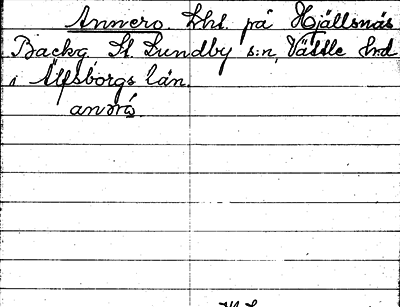 Annero. Lht. på Hjällsnäs
Backg. St. Lundby s:n, Vättle hrd
i Älfsborgs län.